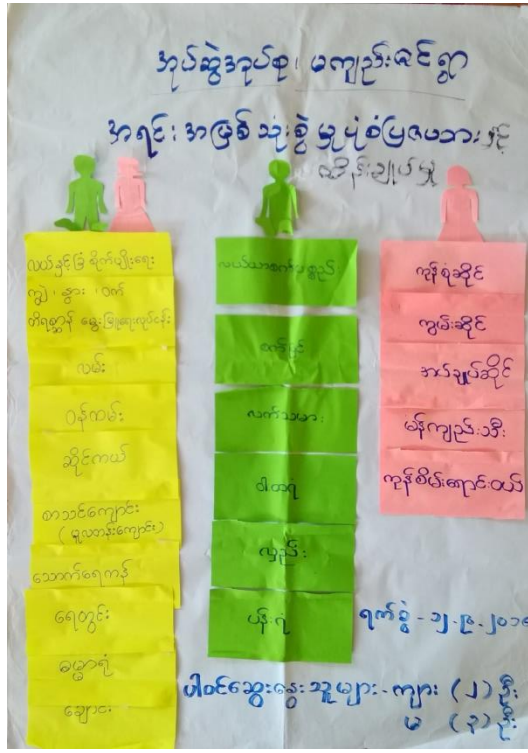 အုပ်ဆွဲအုပ်စု၊ မကျည်းဇင်ရွာ
အရင်းအမြစ်သုံးစွဲမှုပုံစံပြဇယားနှင့်
ထိန်းချုပ်မှု
လယ်နှင့်ခြံစိုက်ပျိုးရေး
ကျွဲ၊ နွား၊ ဝက်
တိရစ္ဆာန် မွေးမြူရေးလုပ်ငန်း
လမ်း
ဝန်ထမ်း
ဆိုင်ကယ်
စာသင်ကျောင်း
(မူလတန်းကျောင်း)
သောက်ရေကန်
ရေတွင်း
ဓမ္မာရုံ
ချောင်း
လယ်ယာစက်ပစ္စည်း
စက်ပြင်
လက်သမား
ပါတရံ
လှည်း
ပန်းရံ
ကုန်စုံဆိုင်
ကွမ်းဆိုင်
အပ်ချုပ်ဆိုင်
မန်ကျည်းသီး
ကုန်စိမ်းရောင်းဝယ်
ရက်စွဲ -
ပါဝင်ဆွေးနွေးသူများ - ကျား (၂) ဦး
မ (၃) ဦး